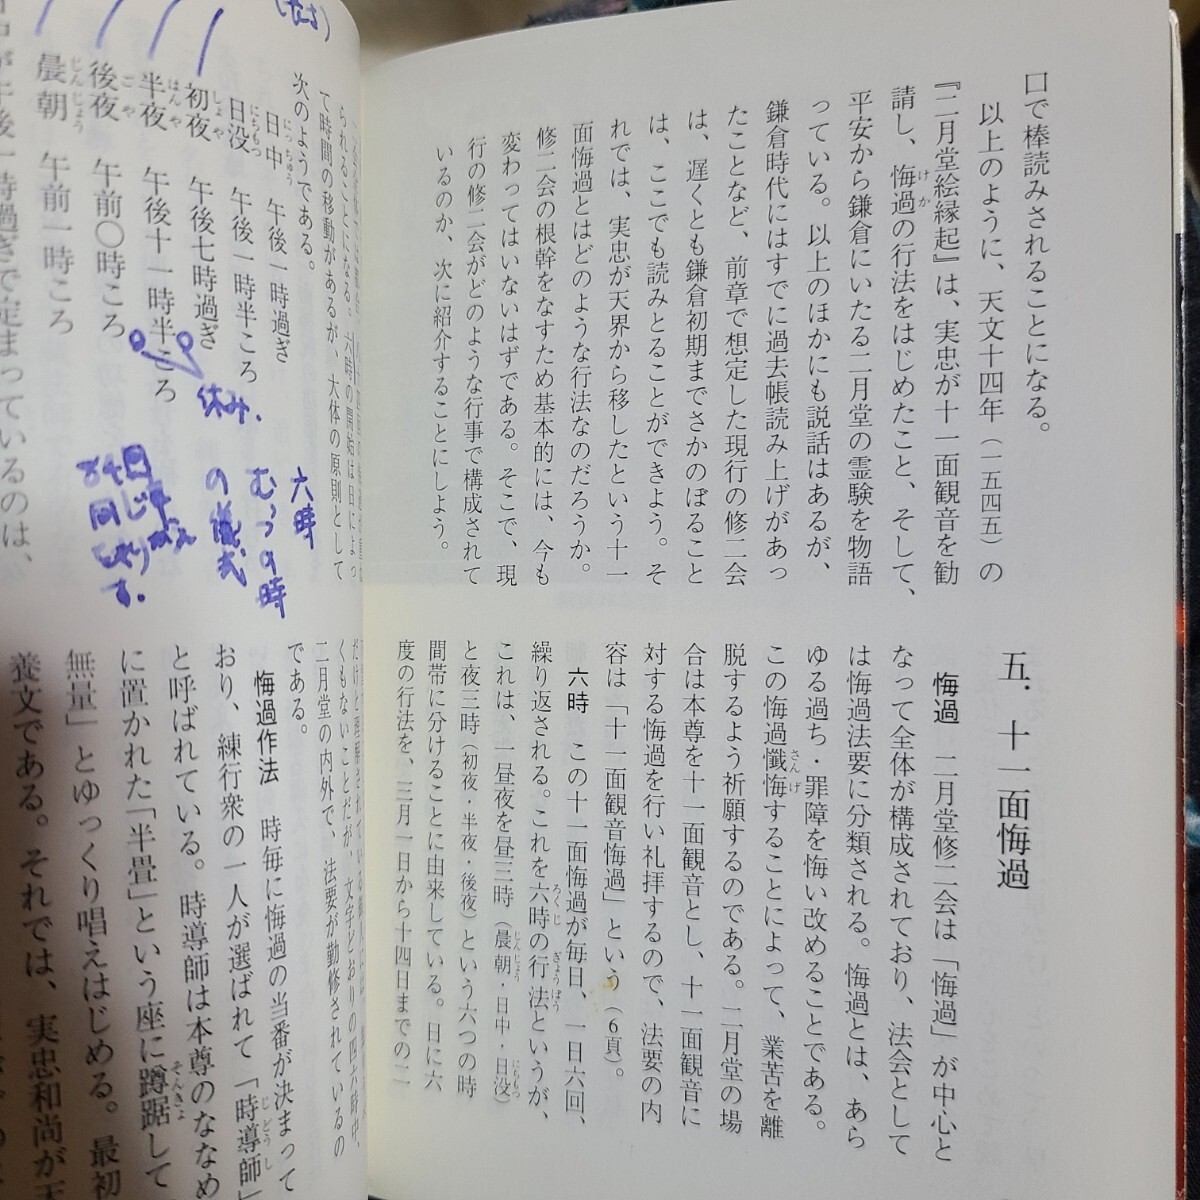 口で棒読みされることになる。
以上のように、天文十四年（一五四五）の
『二月堂絵縁起』は、実忠が十一面観音を勧
請し、悔過の行法をはじめたこと、そして、
平安から鎌倉にいたる二月堂の霊験を物語
っている。以上のほかにも説話はあるが、
鎌倉時代にはすでに過去帳読み上げがあっ
たことなど、前章で想定した現行の修二会
は、遅くとも鎌倉初期までさかのぼること
は、ここでも読みとることができよう。そ
れでは、実忠が天界から移したという十一
面悔過とはどのような行法なのだろうか。
修二会の根幹をなすため基本的には、今も
変わってはいないはずである。そこで、現
行の修二会がどのような行事で構成されて
いるのか、次に紹介することにしよう。
五．十一面悔過
悔過　二月堂修二会は「悔過」が中心と
なって全体が構成されており、法会として
は悔過法要に分類される。悔過とは、あら
ゆる過ち・罪障を悔い改めることである。
この悔過懺悔することによって、業苦を離
脱するよう祈願するのである。二月堂の場
合は本尊を十一面観音とし、十一面観音に
対する悔過を行い礼拝するので、法要の内
容は「十一面観音悔過」という（6頁）。
六時　この十一面悔過が毎日、一日六回、
繰り返される。これを六時の行法というが、
これは、一昼夜を昼三時（晨朝・日中・日没）
と夜三時（初夜・半夜・後夜）という六つの時
間帯に分けることに由来している。日に六
度の行法を、三月一日から十四日までの二
られることになる。六時の開始は日によっ
て時間の移動があるが、大体の原則として
次のようである。
日中　午後一時過ぎ
日没　午後一時半ころ
初夜　午後七時過ぎ
半夜　午後十一時半ころ
後夜　午前〇時ころ
晨朝　午前一時ころ
休み.
六時
むっつの時
の儀式
84回
同じ
す.
くもないことだが、文字どおりの四六時中、
二月堂の内外で、法要が勤修されているの
である。
悔過作法　時毎に悔過の当番が決まって
おり、練行衆の一人が選ばれて「時導師」
と呼ばれている。時導師は本尊のななめ
に置かれた「半畳」という座に蹲踞して
無量」とゆっくり唱えはじめる。最初
養文である。それでは、実忠和尚が天